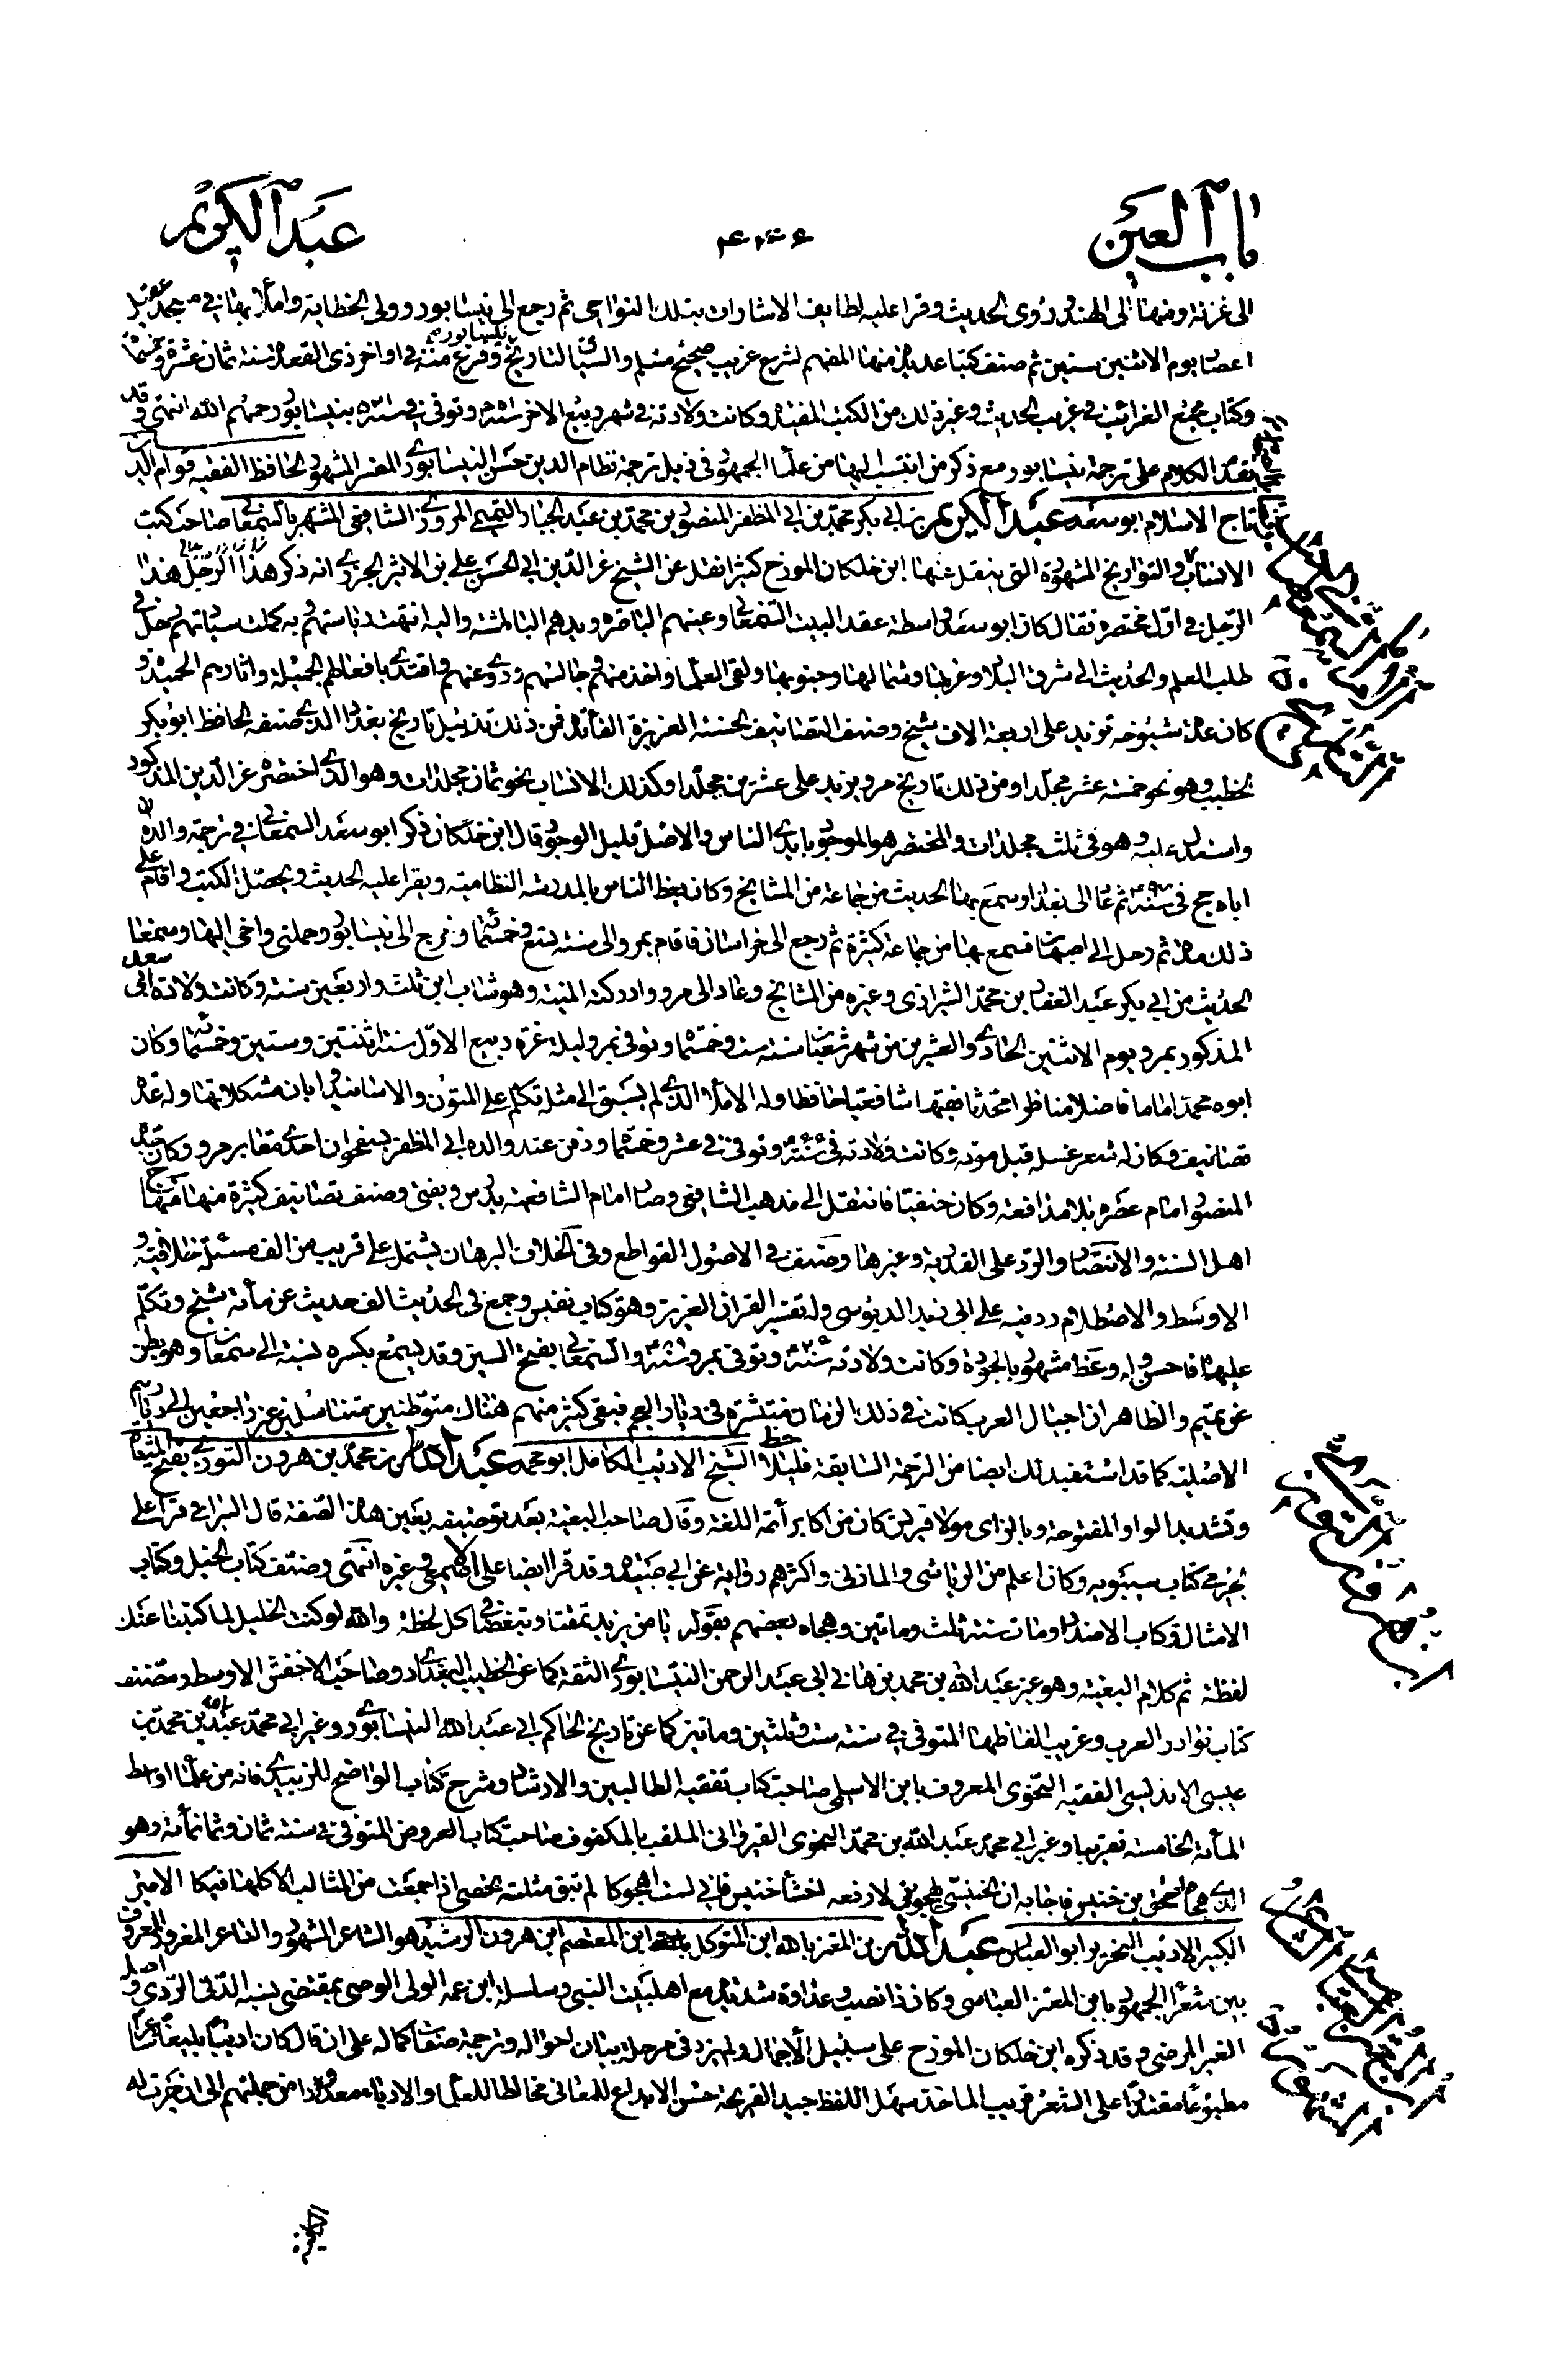 باب العين
عبد الكريم
الى غزنة ومنها الى الهند وروى الحديث وقرا عليه لطايف الاشارات بتلك النواحى ثم رجع الى نيسابور وولى الخطابة واملا بها فى مسجد عقيل
اعصار يوم الاثنين سنين ثم صنف كتبا عديدة منها المفهم لشرح غريب صحيح مسلم والسياق لتاريخ نيسابور وفرغ منه فى اواخر ذى القعدة سنة ثمان عشرة وخمسمائة
وكتاب مجمع الغرائب فى غريب الحديث وغير ذلك من الكتب المفيدة وكانت ولادته فى شهر ربيع الاخر وتوفى فى بنيسابور رحمهم الله انتهى وقد
تقدم الكلام على ترجمة نيسابور مع ذكر من انتسب اليها من علماء الجمهور فى ذيل ترجمة نظام الدين حسن النيسابورى المفسر المشهور الحافظ الفقيه قوام الدين
تاج الاسلام ابو سعد عبد الكريم بن ابى بكر محمد بن ابى المظفر المنصور بن محمد بن عبد الجبار التميمى المروزى الشافعى الشهير بالسمعانى صاحب كتب
الانساب والتواريخ المشهورة التى ينقل عنها ابن خلكان المورخ كثيرا نقل عن الشيخ عز الدين ابى الحسن على بن الاثير الجزرى انه ذكر هذا الرجل هذا
الرجل فى اول مختصره فقال كان ابو سعد واسطة عقد البيت السمعانى وعينهم الباصرة ويدهم الباطشة واليه انتهت رياستهم وبه كملت سيادتهم رحل فى
طلب العلم والحديث الى شرق البلاد وغربها وشمالها وجنوبها ولقى العلماء واخذ منهم وجالسهم وروى عنهم واقتدى بافعالهم الجميلة واثارهم الحميدة و
كان عدة شيوخه تزيد على اربعة الاف شيخ وصنف التصانيف الحسنة العزيزة الفائدة فمن ذلك تذييل تاريخ بغداد الذى صنفه الحافظ ابو بكر
الخطيب وهو نحو خمسة عشر مجلدا ومن ذلك تاريخ مرو يزيد على عشرين مجلدا وكذلك الانساب نحو ثمان مجلدات وهو الذى اختصره عز الدين المذكور
واستدرك عليه وهو فى ثلث مجلدات والمختصر هو الموجود بايدى الناس والاصل قليل الوجود قال ابن خلكان ذكر ابو سعد السمعانى فى ترجمة والده ان
اباه حج فى سنة ثم عاد الى بغداد وسمع بها الحديث من جماعة من المشايخ وكان يعظ الناس بالمدرسة النظامية ويقرا عليه الحديث ويحصل الكتب واقام على
ذلك مدة ثم رحل الى اصبهان فسمع بها من جماعة كثيرة ثم رجع الى خراسان فاقام بمرو الى سنة تسع وخمسمائة وخرج الى نيسابور وحملنى واخى اليها وسمعنا
الحديث من ابى بكر عبد الغفار بن محمد الشيرازى وغيره من المشايخ وعاد الى مرو وادركته المنية وهو شاب ابن ثلث واربعين سنة وكانت ولادة ابى سعد
المذكور بمرو يوم الاثنين الحادى والعشرين من شهر شعبان سنة ست وخمسمائة وتوفى بمرو ليلة غرة ربيع الاول سنة اثنتين وستين وخمسمائة وكان
ابوه محمد اماما فاضلا مناظرا محدثا فقيها شافعيا حافظا وله الاملاء الذى لم يسبق الى مثله تكلم على المتون والاسانيد وابان مشكلاتها وله عدة
تصانيف وكان له شعر غسله قبل موته وكانت ولادته فى وتوفى فى عشر وخمسمائة ودفن عند والده ابى المظفر بسفحوان احدى مقابر مرو وكان جده
المنصور امام عصره بلا مدافعة وكان حنفيا فانتقل الى مذهب الشافعى وصار امام الشافعية يدرس ويفتى وصنف تصانيف كثيرة منها منهاج
اهل السنة والانتصار والرد على القدرية وغيرها وصنف فى الاصول القواطع وفى الخلاف البرهان يشتمل على قريب من الف مسئلة خلافية و
الاوسط والاصطلام رد فيه على ابى زيد الدبوسى وله تفسير القران العزيز وهو كتاب نفيس وجمع فى الحديث الف حديث عن مأة شيخ وتكلم
عليها فاحسن وله وعظ مشهور بالجودة وكانت ولادته وتوفى بمرو والسمعانى بفتح السين وقد يسمع بكسره نسبة الى سمعان وهو بطن
من تميم والظاهر ان اجيال العرب كانت فى ذلك الزمان منتشرة فى ديار العجم فبقى كثير منهم هناك متوطنين متناسلين غير راجعين الى ديارهم
الاصلية كما قد استفيد لك ايضا من الترجمة السابقة قليلا حظ الشيخ الاديب الكامل ابو محمد عبد الله بن محمد بن هرون التوزى بفتح المثناة
وتشديد الواو المفتوحة وبالزاى مولا قريش كان من اكابر أئمة اللغة وقال صاحب البغية بعد توصيفه بعين هذه الصفة قال السيرافى قرا على
الجرمى كتاب سيبويه وكان اعلم من الرياشى والمازنى واكثرهم رواية عن ابى عبيدة وقد قرا ايضا على الاصمعى وغيره انتهى وصنف كتاب الخيل وكتاب
الامثال وكتاب الاضداد ومات سنة ثلث وماتين وهجاه بعضهم بقوله يا من يزيد تمقتا وتبغضا فى كل لحظة والله لو كنت الخليل لما كتبنا عنك
لفظة ثم كلام البغية وهو غير عبد الله بن محمد بن هانى ابى عبد الرحمن النيسابورى الثقة كما عن الخطيب البغدادى وصاحب الاخفش الاوسط ومصنف
كتاب نوادر العرب وغريب الفاظها المتوفى فى سنة ست وثلثين وماتين كما عن تاريخ الحاكم ابى عبد الله النيسابورى وغير ابى محمد عبد الله بن محمد بن
عيسى الاندلسى الفقيه النحوى المعروف بابن الاسلمى صاحب كتاب تفقيه الطالبين والارشاد وشرح كتاب الواضح للزبيدى فانه من علماء اواسط
المأة الخامسة تقريبا وغير ابى محمد عبد الله بن محمد النحوى القيروانى الملقب بالمكفوف صاحب كتاب العروض المتوفى فى سنة ثمان وثمانمأة وهو
الذى هجاه اسحق بن خنيس فاجابه ان الخنيسى يهجونى لارفعه اخسأ خنيس فانى لست اهجوكا لم تبق مثلبة تحصى اذا جمعت من المثالب الا كلها فيكا الامير
الكبير الاديب النحرير ابو العباس عبد الله بن المعتز بالله ابن المتوكل بالله ابن المعتصم ابن هرون الرشيد هو الشاعر المشهور والفاعر المغرور المعروف
بين شعراء الجمهور بابن المعتز العباسى وكان ذا نصب وعداوة شديدة مع اهلبيت النبى وسلسلة ابن عمه الولى الوصى بمقتضى نسبه الدنى الردى واصله
الغير المرضى وقد ذكره ابن خلكان المورخ على سبيل الاجمال ولم يزد فى مرحلة بيان احواله وترجمة صفات كماله على ان قال كان اديبا بليغا شاعرا
مطبوعا مقتدرا على الشعر قريب الماخذ سهل اللفظ جيد القريحة حسن الابداع للمعانى مخالطا للعلماء والادباء معدودا من جملتهم الى ان جرت له